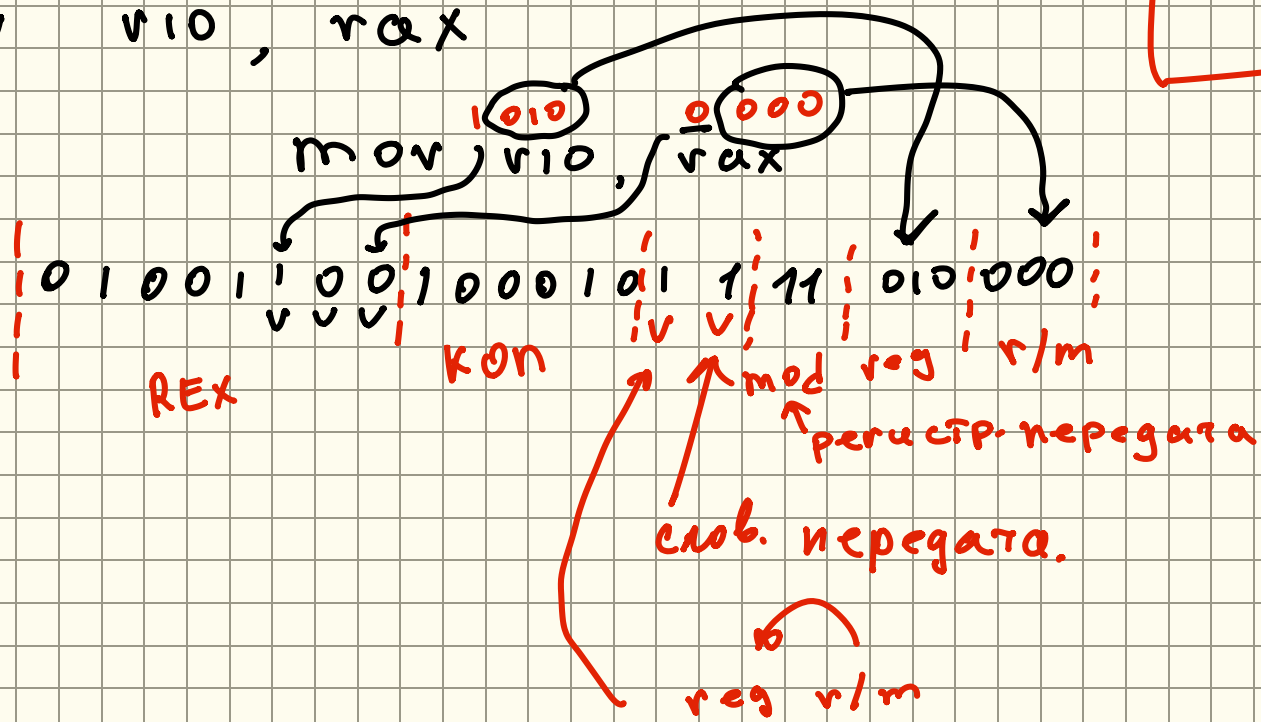 r10, rax
1 010 0 000
mov r10, rax
0 1 0 0 1 1 0 0 1 0 0 0 1 0 1 1 11 010 000
v v v v v
REX КОП mod reg r/m
регистр. передача
слов. передача.
reg r/m